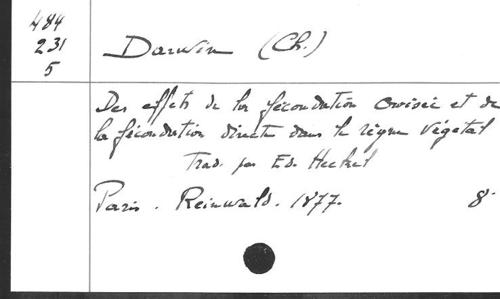 484
231
5
Darwin (Ch.)
Des effets de la fécondation croisée et de
la fécondation directe dans le règne végétal
Trad. par Ed. Heckel
Paris. Reinwald. 1877. 8°